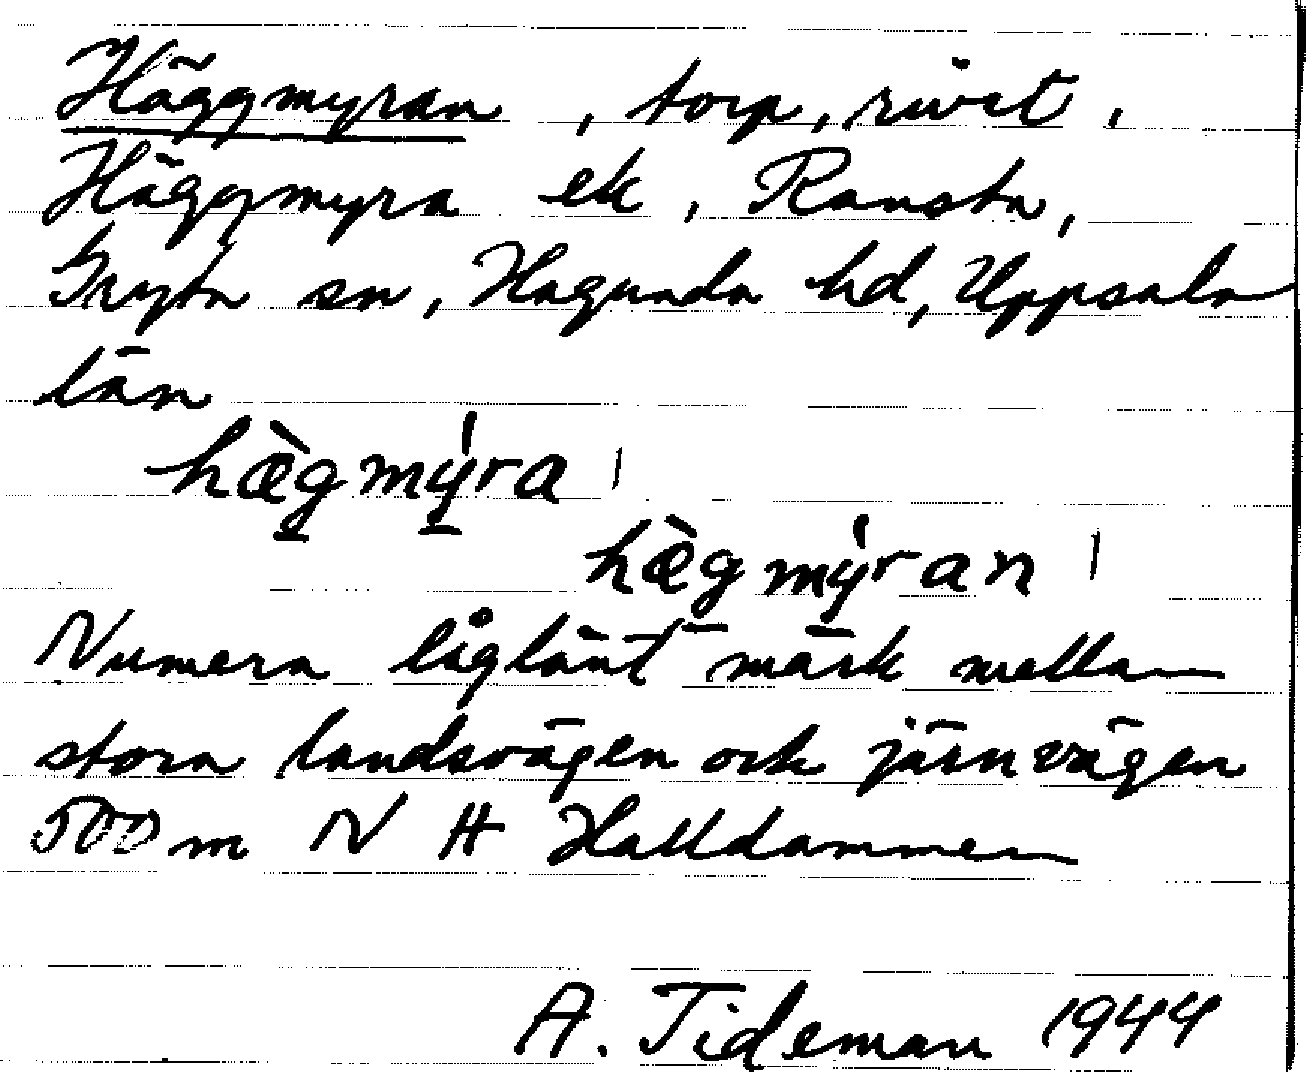 Häggmyran, torp, rivet,
Häggmyra ek, Ransta,
Gryta sn, Hagunda hd, Uppsala
län
hæ̀gmýra |
hæ̀gmýran |
Numera låglänt märk mellan
stora landsvägen och järnvägen
500 m N H Halldammen
A. Tideman 1944